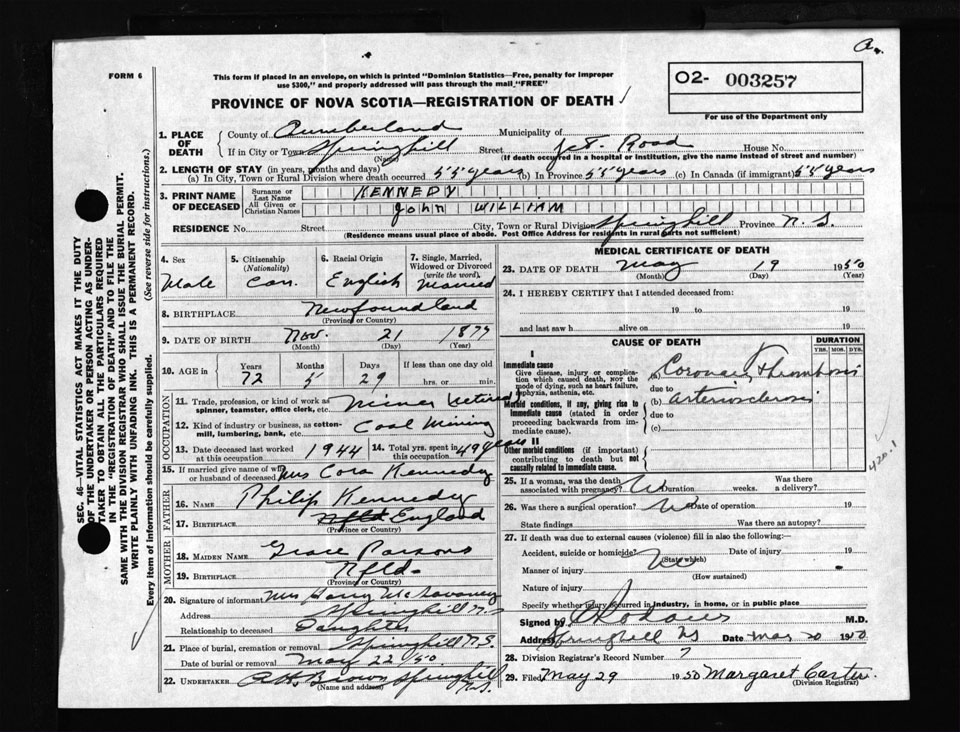 a.
FORM 6
This form if placed in an envelope, on which is printed "Dominion Statistics—Free, penalty for improper
use $300," and properly addressed will pass through the mail "FREE"
02- 003257
For use of the Department only
PROVINCE OF NOVA SCOTIA—REGISTRATION OF DEATH
1. PLACE OF DEATH
County of Cumberland Municipality of
If in City or Town Springhill Street Jct. Road House No.
(Name) (If death occurred in a hospital or institution, give the name instead of street and number)
2. LENGTH OF STAY (in years, months and days)
(a) In City, Town or Rural Division where death occurred 55 years (b) In Province 55 years (c) In Canada (if immigrant) 55 years
3. PRINT NAME OF DECEASED
Surname or Last Name KENNEDY
All Given or Christian Names John WILLIAM
RESIDENCE No. Street City, Town or Rural Division Springhill Province N.S.
(Residence means usual place of abode. Post Office Address for residents in rural parts not sufficient)
4. Sex Male
5. Citizenship (Nationality) Can.
6. Racial Origin English
7. Single, Married, Widowed or Divorced (write the word) Married
8. BIRTHPLACE Newfoundland
(Province or Country)
9. DATE OF BIRTH Nov. 21 1877
(Month) (Day) (Year)
10. AGE in Years Months Days If less than one day old
72 5 29 hrs. or min.
OCCUPATION
11. Trade, profession, or kind of work as spinner, teamster, office clerk, etc. Miner Retired
12. Kind of industry or business, as cotton-mill, lumbering, bank, etc. Coal Mining
13. Date deceased last worked at this occupation 1944
14. Total yrs. spent in this occupation 49 years
15. If married give name of wife or husband of deceased Mrs Cora Kennedy
FATHER
16. NAME Philip Kennedy
17. BIRTHPLACE Nfld England
(Province or Country)
MOTHER
18. MAIDEN NAME Grace Parsons
19. BIRTHPLACE Nfld.
(Province or Country)
20. Signature of informant Mrs Harry
Address Springhill N.S.
Relationship to deceased Daughter
21. Place of burial, cremation or removal Springhill N.S.
Date of burial or removal May 22 '50
22. UNDERTAKER A.H. Brown Springhill N.S.
(Name and address)
MEDICAL CERTIFICATE OF DEATH
23. DATE OF DEATH May 19 1950
(Month) (Day) (Year)
24. I HEREBY CERTIFY that I attended deceased from:
19 to 19
and last saw h alive on 19
CAUSE OF DEATH
DURATION
YRS. MOS. DYS.
I
Immediate cause
Give disease, injury or complication which caused death, NOT the mode of dying, such as heart failure, asphyxia, asthenia, etc.
(a) Coronary Thrombosis
due to
Morbid conditions, if any, giving rise to immediate cause (stated in order proceeding backwards from immediate cause).
(b) arteriosclerosis
due to
(c)
II
Other morbid conditions (if important) contributing to death but not causally related to immediate cause.
420.1
25. If a woman, was the death associated with pregnancy? Duration weeks. Was there a delivery?
26. Was there a surgical operation? no Date of operation 19
State findings Was there an autopsy?
27. If death was due to external causes (violence) fill in also the following:—
Accident, suicide or homicide? no Date of injury 19
(State which)
Manner of injury
(How sustained)
Nature of injury
Specify whether injury occurred in industry, in home, or in public place
Signed by M.D.
Address Springhill NS Date May 20 1950
28. Division Registrar's Record Number 7
29. Filed May 29 1950 Margaret Carter
(Division Registrar)
SEC. 46—VITAL STATISTICS ACT MAKES IT THE DUTY
OF THE UNDERTAKER OR PERSON ACTING AS UNDER-
TAKER TO OBTAIN ALL THE PARTICULARS REQUIRED
IN THE "REGISTRATION OF DEATH" AND TO FILE THE
SAME WITH THE DIVISION REGISTRAR WHO SHALL ISSUE THE BURIAL PERMIT.
WRITE PLAINLY WITH UNFADING INK. THIS IS A PERMANENT RECORD.
Every item of information should be carefully supplied. (See reverse side for instructions.)